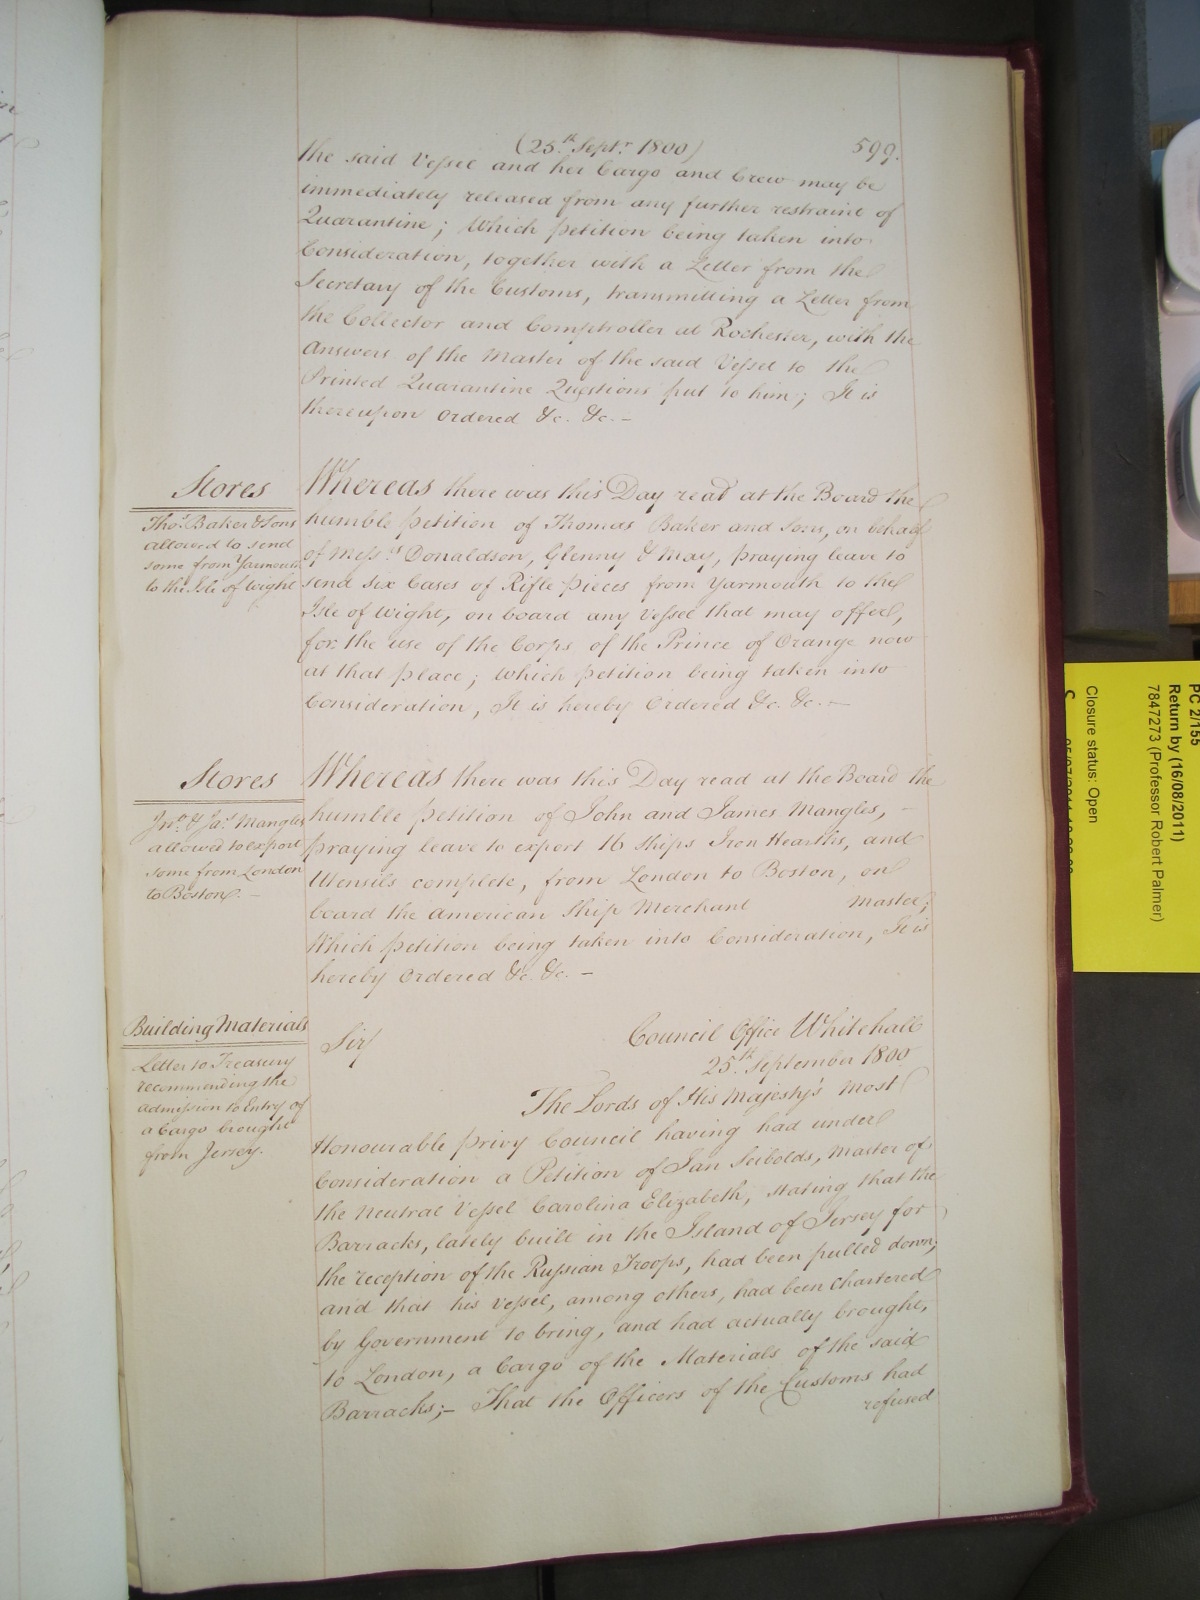 (25.th Septr. 1800)
599.
the said Vessel and her Cargo and Crew may be
immediately released from any further restraint of
Quarantine; Which petition being taken into
Consideration, together with a Letter from the
Secretary of the Customs, transmitting a Letter from
the Collector and Comptroller at Rochester, with the
Answers of the Master of the said Vessel to the
Printed Quarantine Questions put to him; It is
thereupon Ordered &c. &c. –
Stores
Thos. Baker & Sons
allowed to send
some from Yarmouth
to the Isle of Wight
Whereas there was this Day read at the Board the
humble petition of Thomas Baker and Sons, on behalf
of Messrs. Donaldson, Glenny & May, praying leave to
send six Cases of Rifle pieces from Yarmouth to the
Isle of Wight, on board any Vessel that may offer,
for the use of the Corps of the Prince of Orange now
at that place; which petition being taken into
Consideration, It is hereby Ordered &c. &c. –
Stores
Jno. & Jas. Mangles
allowed to export
some from London
to Boston. –
Whereas there was this Day read at the Board the
humble petition of John and James Mangles, –
praying leave to export 16 Ships Iron Hearths, and
Utensils complete, from London to Boston, on
board the American Ship Merchant Master;
Which petition being taken into Consideration, It is
hereby Ordered &c. &c. –
Building Materials
Letter to Treasury
recommending the
admission to Entry of
a Cargo brought
from Jersey.
Sir/
Council Office Whitehall
25.th September 1800
The Lords of His Majesty's Most
Honourable privy Council having had under
Consideration a Petition of Jan Seibolds, Master of
the Neutral Vessel Carolina Elizabeth, stating that the
Barracks, lately built in the Island of Jersey for
the reception of the Russian Troops, had been pulled down;
and that his Vessel, among others, had been Chartered
by Government to bring, and had actually brought,
to London, a Cargo of the Materials of the said
Barracks; – That the Officers of the Customs had
refused
PC 2/155
Return by (16/08/2011)
7847273 (Professor Robert Palmer)
Closure status: Open